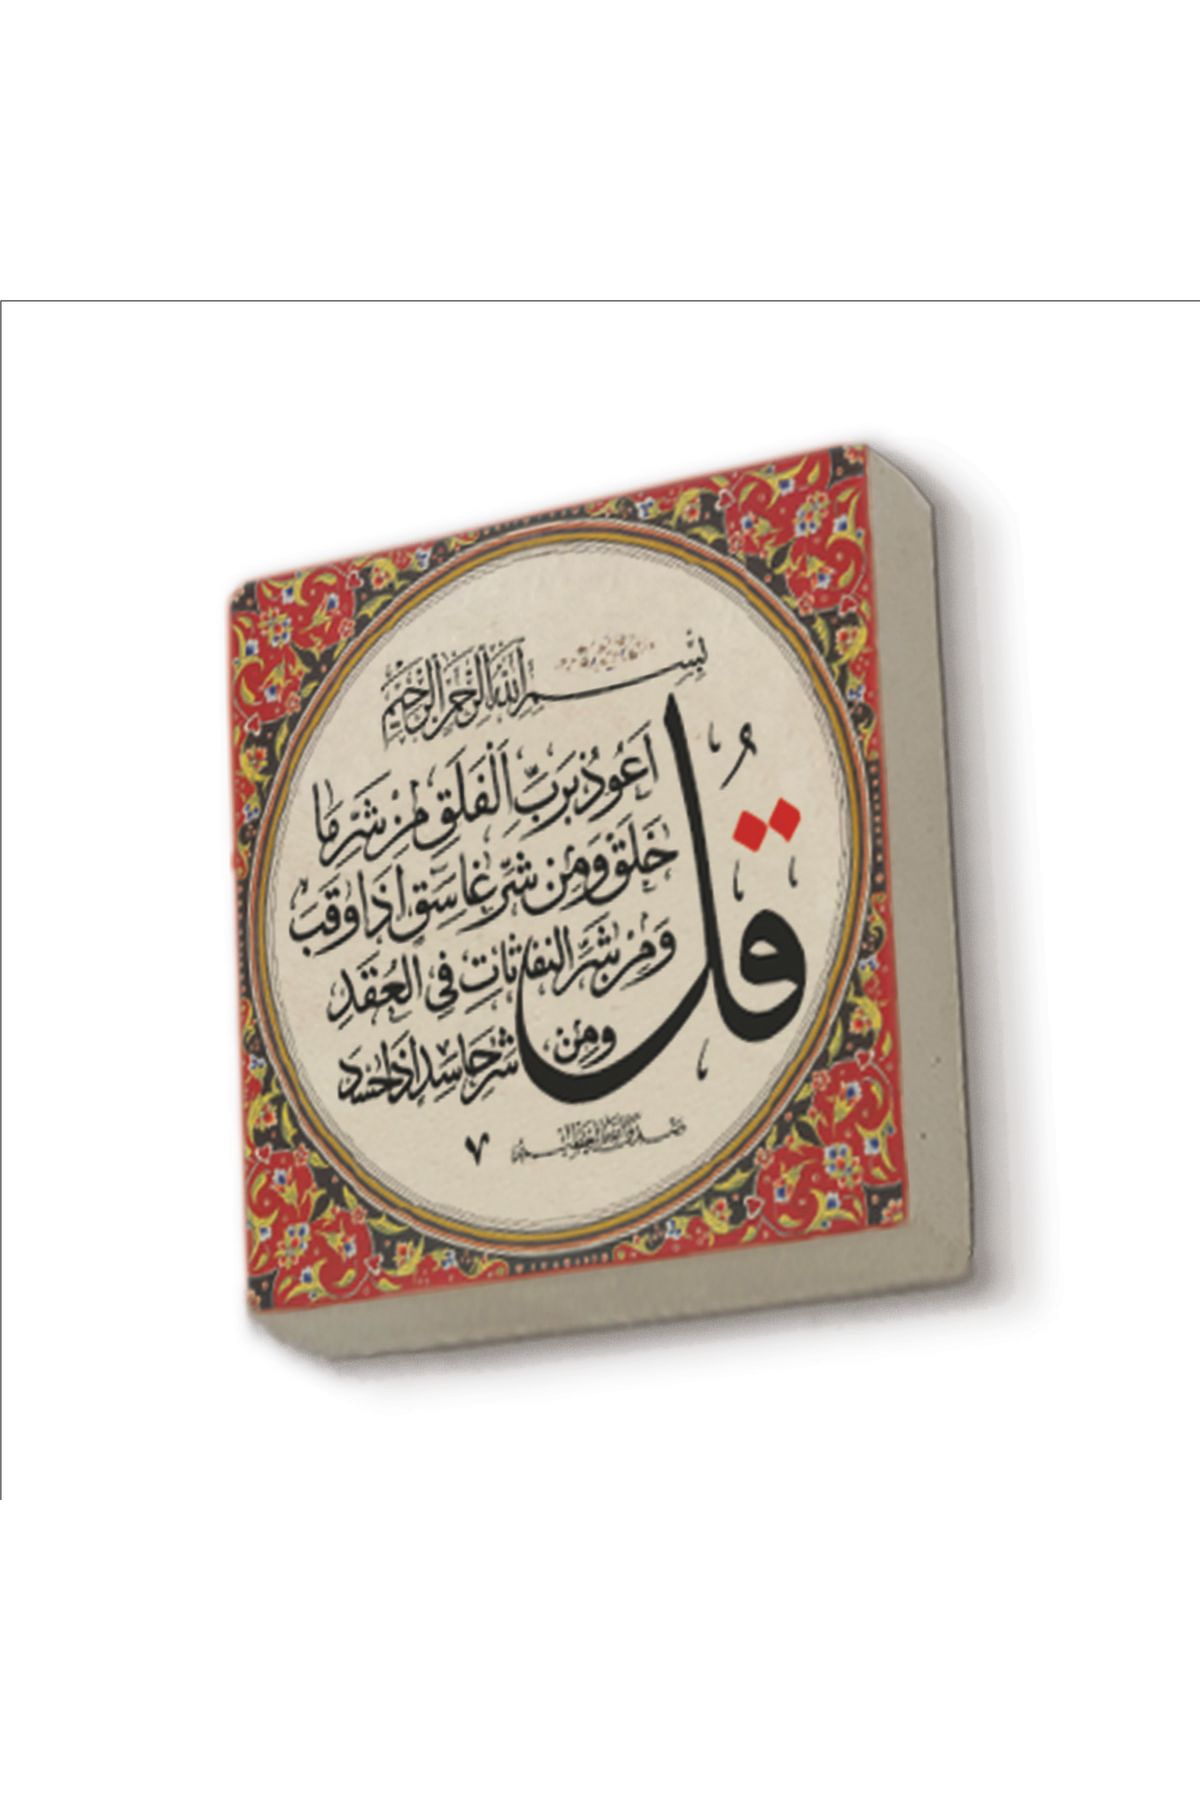 بِسْمِ اللّٰهِ الرَّحْمٰنِ الرَّحِيْمِ
قُلْ اَعُوذُ بِرَبِّ الْفَلَقِ مِنْ شَرِّ مَا
خَلَقَ وَمِنْ شَرِّ غَاسِقٍ اِذَا وَقَبَ
وَمِنْ شَرِّ النَّفّٰثَاتِ فِي الْعُقَدِ
وَمِنْ شَرِّ حَاسِدٍ اِذَا حَسَدَ
صدق الله العظيم
٧